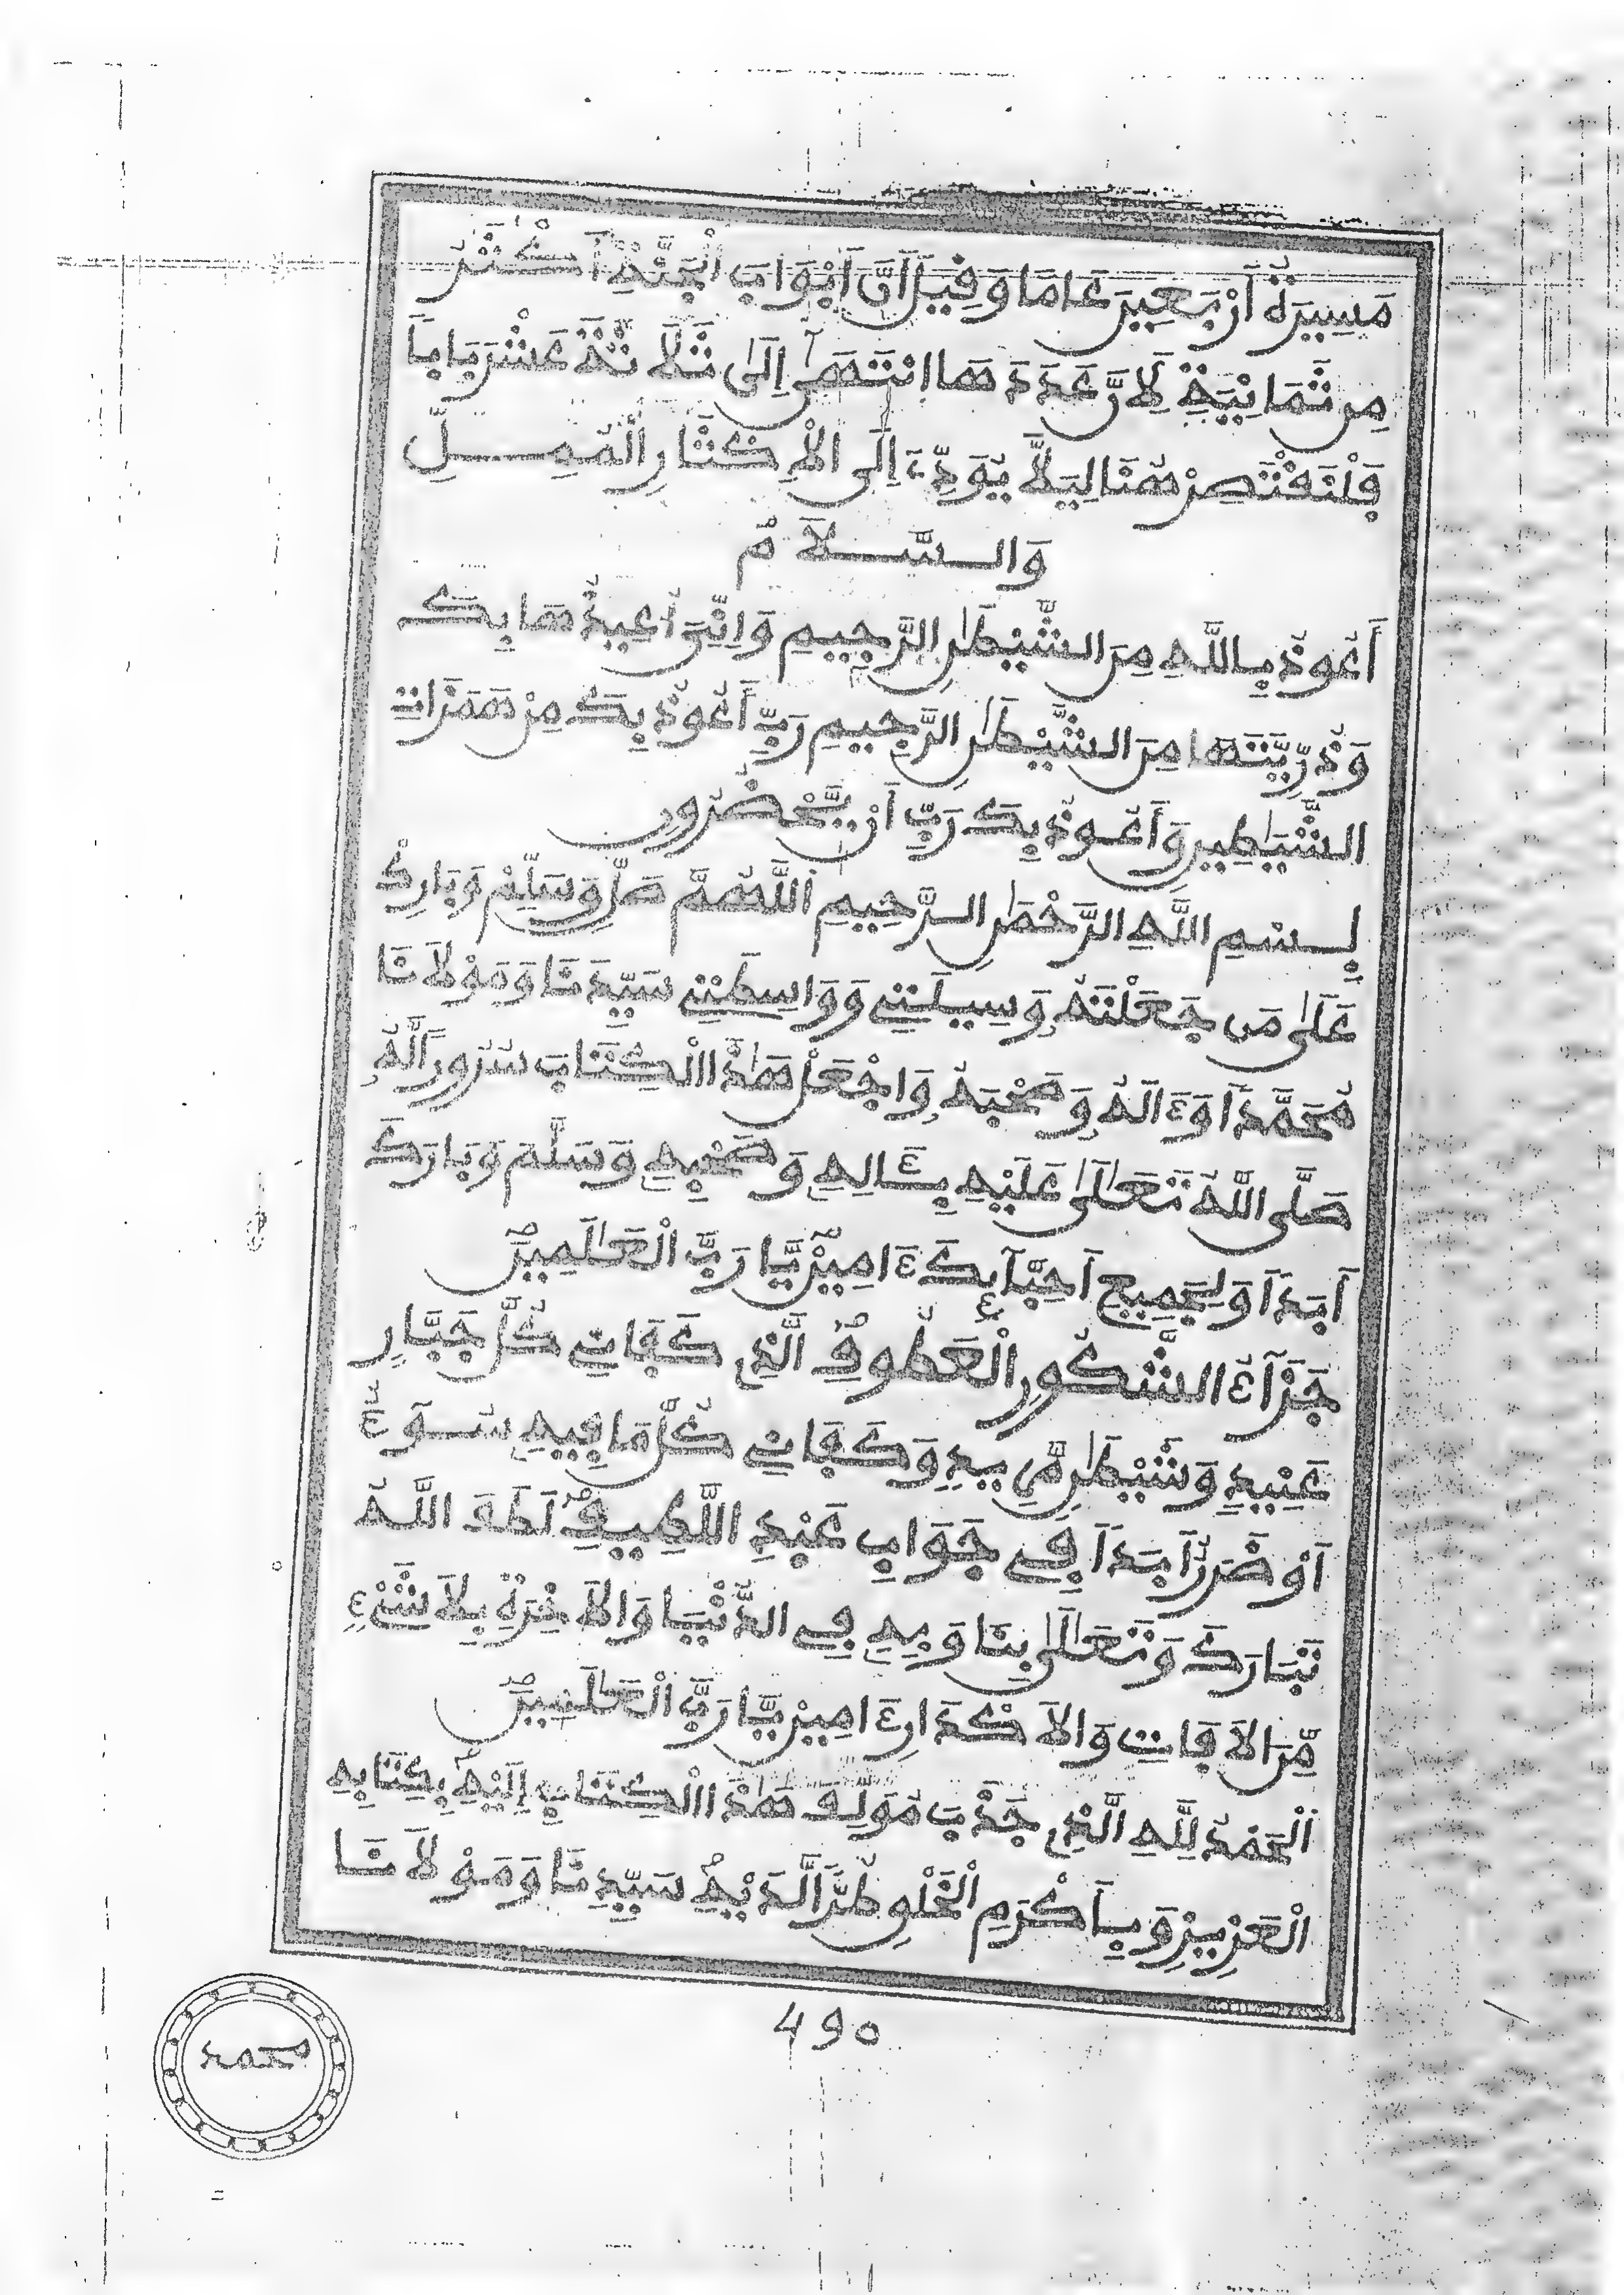 مَسِيرَةُ أَرْبَعِينَ عَامًا وَقِيلَ أَنَّ أَبْوَابَ الْجَنَّةِ أَكْثَرُ
مِن ثَمَانِيَةٍ لَأَنَّ عَدَدَهَا انْتَهَى إِلَى ثَلَاثَةَ عَشَرَ بَابًا
فَلْنَقْتَصِرْ هُنَا لِيَلَّا يُؤَدِّيَ إِلَى الْإِكْثَارِ الْمُمِلِّ
وَالسَّلَامُ
أَعُوذُ بِاللَّهِ مِنَ الشَّيْطَٰنِ الرَّجِيمِ وَإِنِّيَ أُعِيذُهَا بِكَ
وَذُرِّيَّتَهَا مِنَ الشَّيْطَٰنِ الرَّجِيمِ رَبِّ أَعُوذُ بِكَ مِنْ هَمَزَاتِ
الشَّيَٰطِينِ وَأَعُوذُ بِكَ رَبِّ أَنْ يَّحْضُرُونِ
بِسْمِ اللَّهِ الرَّحْمَٰنِ الرَّحِيمِ اللَّهُمَّ صَلِّ وَسَلِّمْ وَبَارِكْ
عَلَىٰ مَن جَعَلْتَهُ وَسِيلَتِي وَوَاسِطَتِي سَيِّدَنَا وَمَوْلَانَا
مُحَمَّدًا وَءَالَهُ وَصَحْبَهُ وَاجْعَلْ هَٰذَا الْكِتَابَ سُرُورًا لَّهُ
صَلَّى اللَّهُ تَعَالَىٰ عَلَيْهِ بِـَٔالِهِ وَصَحْبِهِ وَسَلَّمَ وَبَارَكَ
أَبَدًا وَلِجَمِيعِ أَحِبَّآئِكَ ءَامِينَ يَّا رَبَّ الْعَٰلَمِينَ
جَزَآءُ الشَّكُورِ الْعَطُوفِ الَّذِي كَفَانِي كُلَّ جَبَّارٍ
عَنِيدٍ وَشَيْطَٰنٍ مَّرِيدٍ وَكَفَانِي كُلَّ مَا فِيهِ سُوٓءٌ
أَوْ ضَرَرٌ أَبَدًا فِي جَوَابِ عَبْدِ اللَّطِيفِ لَطَفَ اللَّهُ
تَبَارَكَ وَتَعَالَىٰ بِنَا وَبِهِ فِي الدُّنْيَا وَالْآخِرَةِ بِلَا شَيْءٍ
مِّنَ الْآفَاتِ وَالْأَكْدَارِ ءَامِينَ يَّا رَبَّ الْعَٰلَمِينَ
الْحَمْدُ لِلَّهِ الَّذِي جَذَبَ مُؤَلِّفَ هَٰذَا الْكِتَابِ إِلَيْهِ بِكِتَابِهِ
الْعَزِيزِ وَبِأَكْرَمِ الْخَلْقِ طُرًّا لَّدَيْهِ سَيِّدِنَا وَمَوْلَانَا
490
محمد